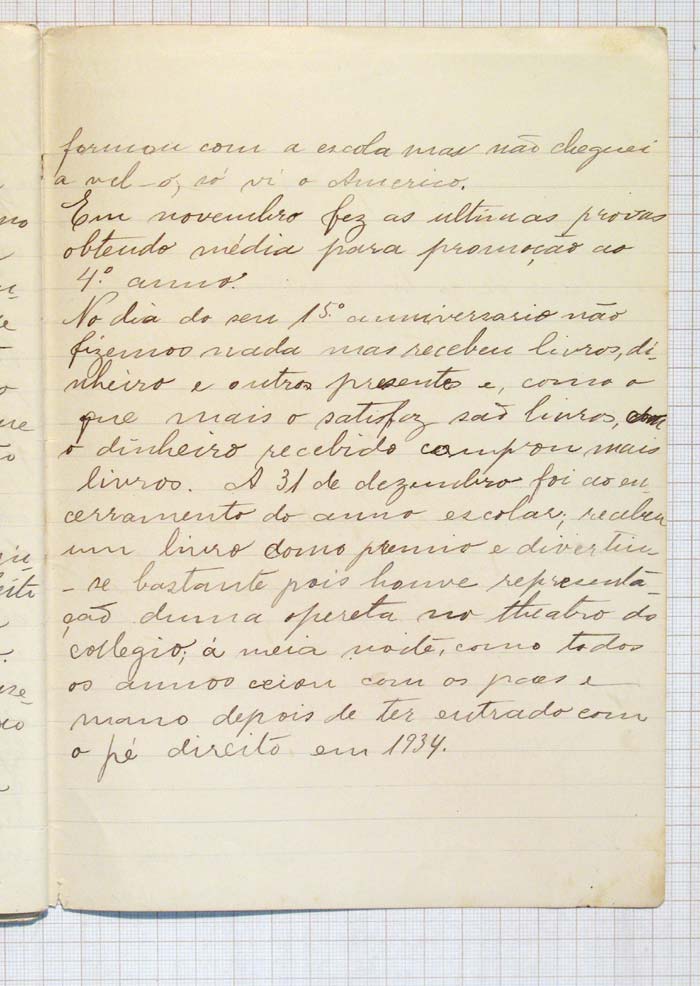 formou com a escola mas não cheguei
a vel-o, só vi o Americo.
Em novembro fez as ultimas provas
obtendo média para promoção ao
4.º anno.
No dia do seu 15.º anniversario não
fizemos nada mas recebeu livros, di-
nheiro e outros presentes e, como o
que mais o satisfaz são livros, com
o dinheiro recebido comprou mais
livros. A 31 de dezembro foi ao en-
cerramento do anno escolar; recebeu
um livro como premio e divertiu
-se bastante pois houve representa-
ção duma opereta no theatro do
collegio; á meia noite, como todos
os annos ceiou com os paes e
mano depois de ter entrado com
o pé direito em 1934.